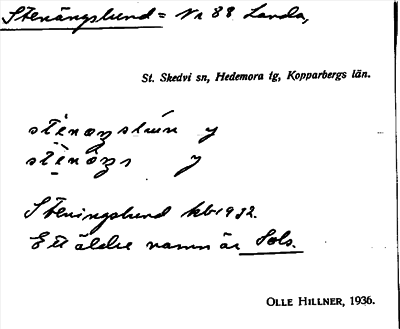 Stenängslund = Nr 88 Landa,
St. Skedvi sn, Hedemora tg, Kopparbergs län.
y
y
Steningslund kb 1932.
Ett äldre namn är Sols.
OLLE HILLNER, 1936.